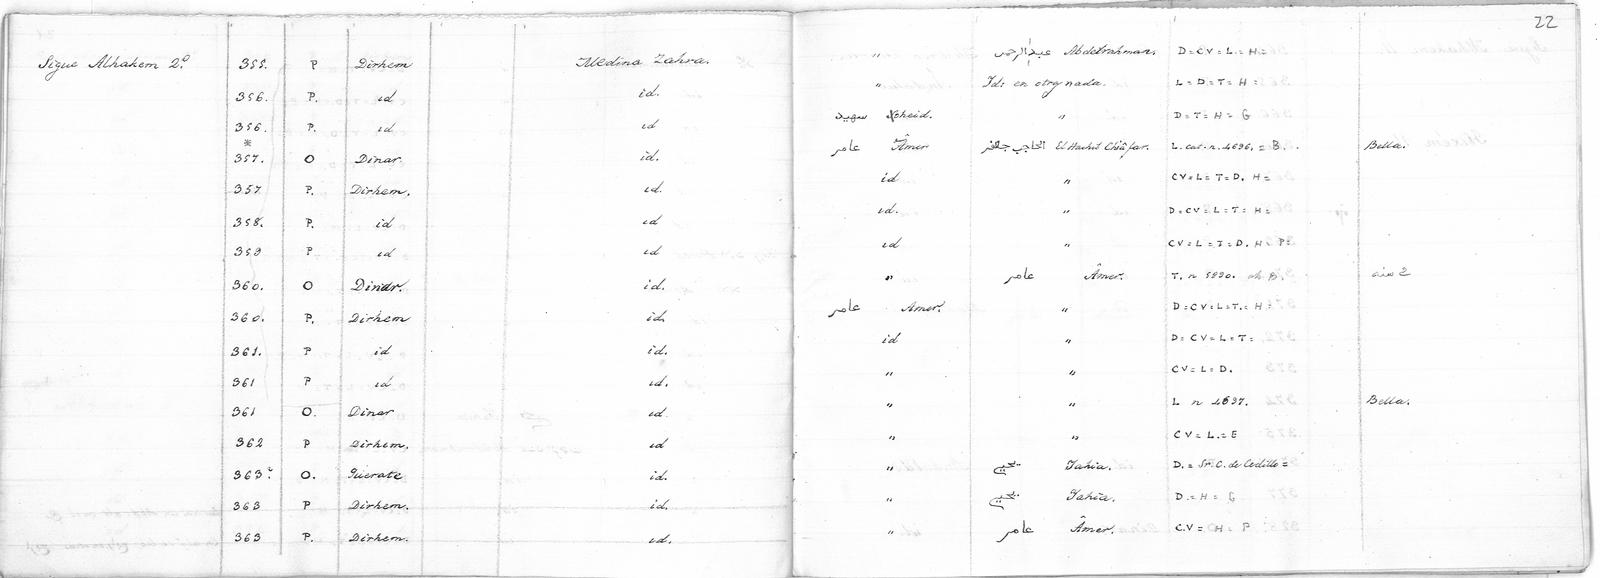 22
Sigue Alhakem 2º 355. P Dirhem Medina Zahra. " عبدالرحمن Abderrahman. D=CV=L=H=
356. P. id id. " Id: en otry nada. L=D=T=H=
356. P. id id سهيد Xoheid. " D=T=H=G
* 357. O Dinar. id. عامر Âmer الحاجب جعفر El Hachit Châfar. L. cat. n. 4696. = B. Bella.
357 P. Dirhem. id. id " CV=L=T=D. H=
358. P. id id id. " D=CV=L=T=H=
359 P id id id " CV=L=T=D. H= P=
360. O Dinar. id. " عامر Âmer. T. n 5990.
360. P. Dirhem id. عامر Amer. " D=CV=L=T.=H=
361. P id id. id " D=CV=L=T=
361 P id id. " " CV=L=D.
361 O. Dinar id " " L n 4697. Bella.
362 P Dirhem. id " " CV=L.=E
363. O. id. " يحيى Iahia. D.= Sr. C. de Cedillo=
363 P Dirhem. id. " يحيى Iahia. D.=H=G
363 P. Dirhem. id. " عامر Âmer. C.V=H=P